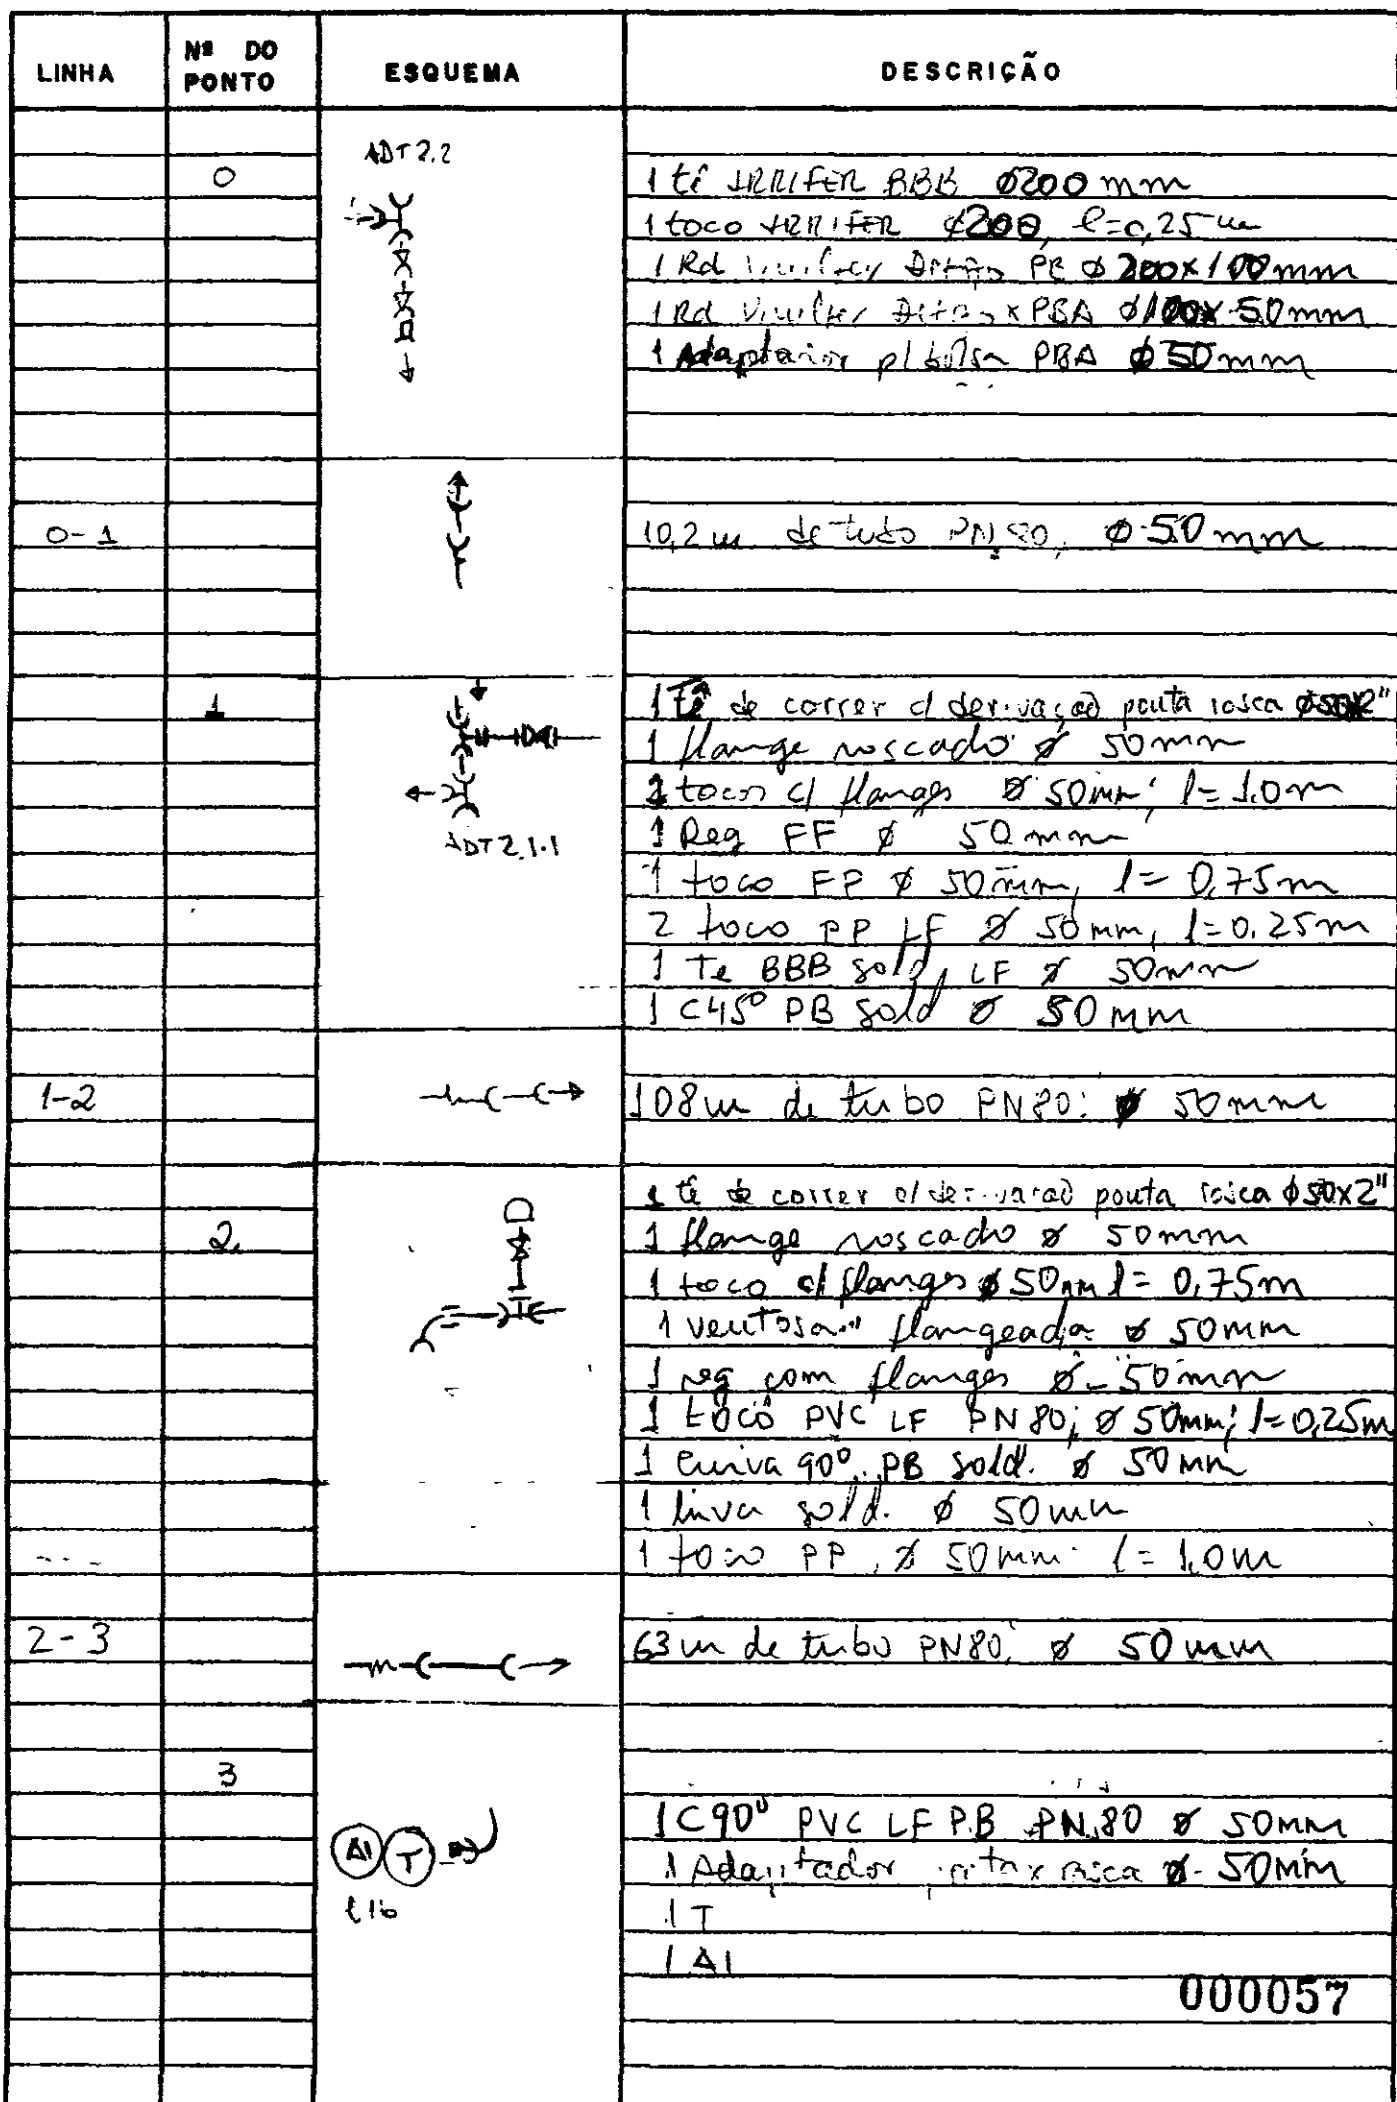 LINHA Nº DO PONTO ESQUEMA DESCRIÇÃO
ADT 2.2
0 1 tê IRRIFER BBB ø200 mm
1 toco IRRIFER ø200, l=0,25 m
1 Rd PB ø 200x100mm
1 Rd x PBA ø100x 50mm
1 Adaptador p/ bolsa PBA ø 50mm
0-1 10,2 m de tubo PN 80, ø 50 mm
1 1 Tê de correr c/ derivação ponta rosca ø50x2"
1 flange roscado ø 50mm
tocos c/ flanges ø 50mm; l= 1.0m
1 Reg FF ø 50 mm
ADT 2.1.1
1 toco FP ø 50mm, l= 0,75m
2 toco PP LF ø 50mm, l=0.25m
1 Te BBB sold, LF ø 50mm
1 C45º PB sold ø 50mm
1-2 108m de tubo PN80: ø 50mm
1 tê de correr c/ derivação ponta rosca ø50x2"
2. 1 flange roscado ø 50mm
1 toco c/ flanges ø 50mm l= 0,75m
1 ventosa flangeada ø 50mm
1 reg com flanges ø 50mm
1 toco PVC LF PN 80; ø 50mm; l=0,25m
1 Curva 90º PB sold. ø 50mm
1 luva sold. ø 50mm
1 toco PP, ø 50mm l= 1,0m
2-3 63m de tubo PN80, ø 50mm
3
1 C90º PVC LF P.B PN.80 ø 50mm
1 Adaptador rosca ø 50mm
AI T
1 T
1 AI
000057